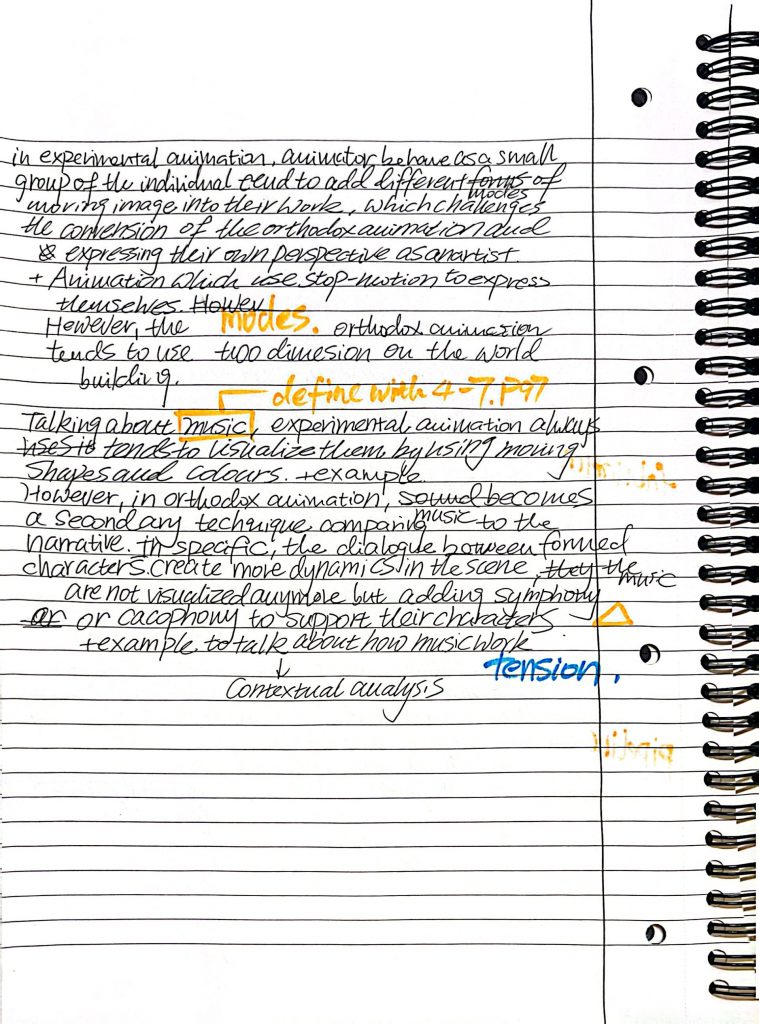 in experimental animation, animator behave as a small
group of the individual tend to add different forms of
modes
moving image into their work, which challenges
the convension of the orthodox animation and
& expressing their own perspective as an artist.
+ Animation which use stop-motion to express
themselves. Howev
However, the modes. orthodox animation
tends to use two dimesion on the world
building.
define with 4-7. P97
Talking about music, experimental animation always
uses to tends to visualize them by using moving
shapes and colours. +example.
However, in orthodox animation, sound becomes
music
a secondary technique comparing to the
narrative. In specific, the dialogue between formed
characters create more dynamics in the scene, they the
music
are not visualized anymore but adding symphony
or or cacophony to support their characters
+example to talk about how music work
tension.
Contextual analysis